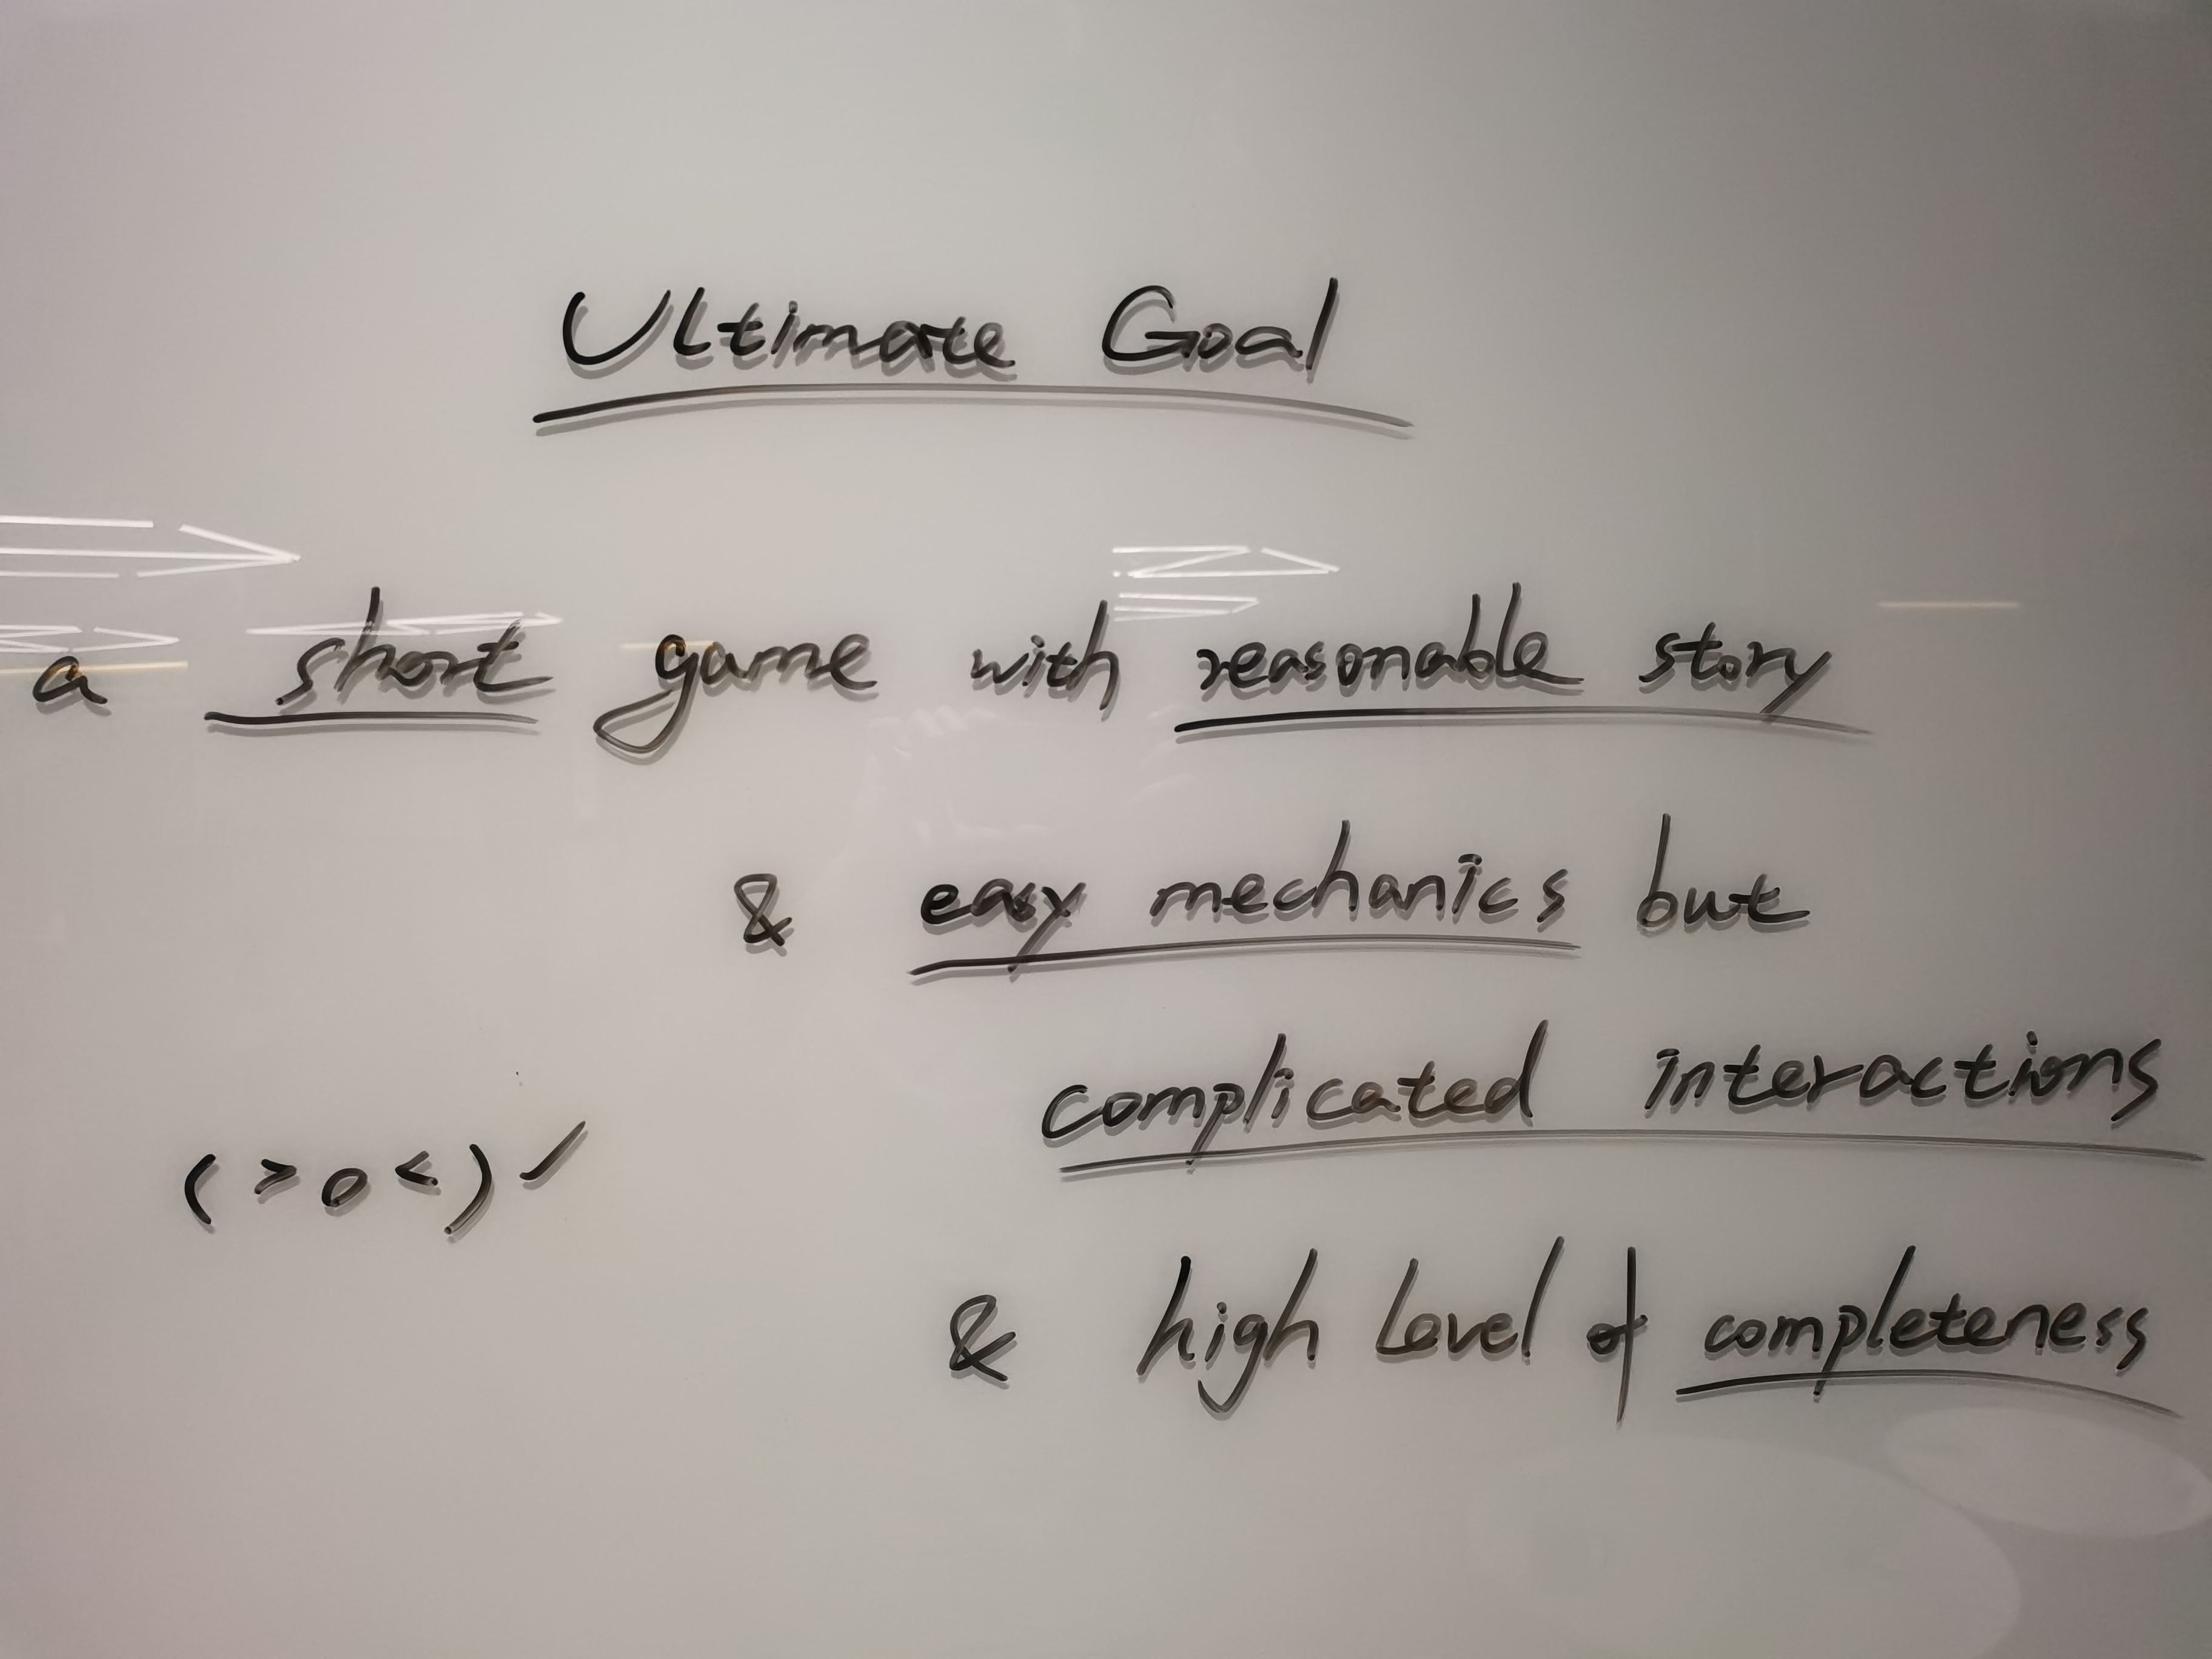 Ultimate Goal
a short game with reasonable story
& easy mechanics but
complicated interactions
(>o<)✓
& high level of completeness